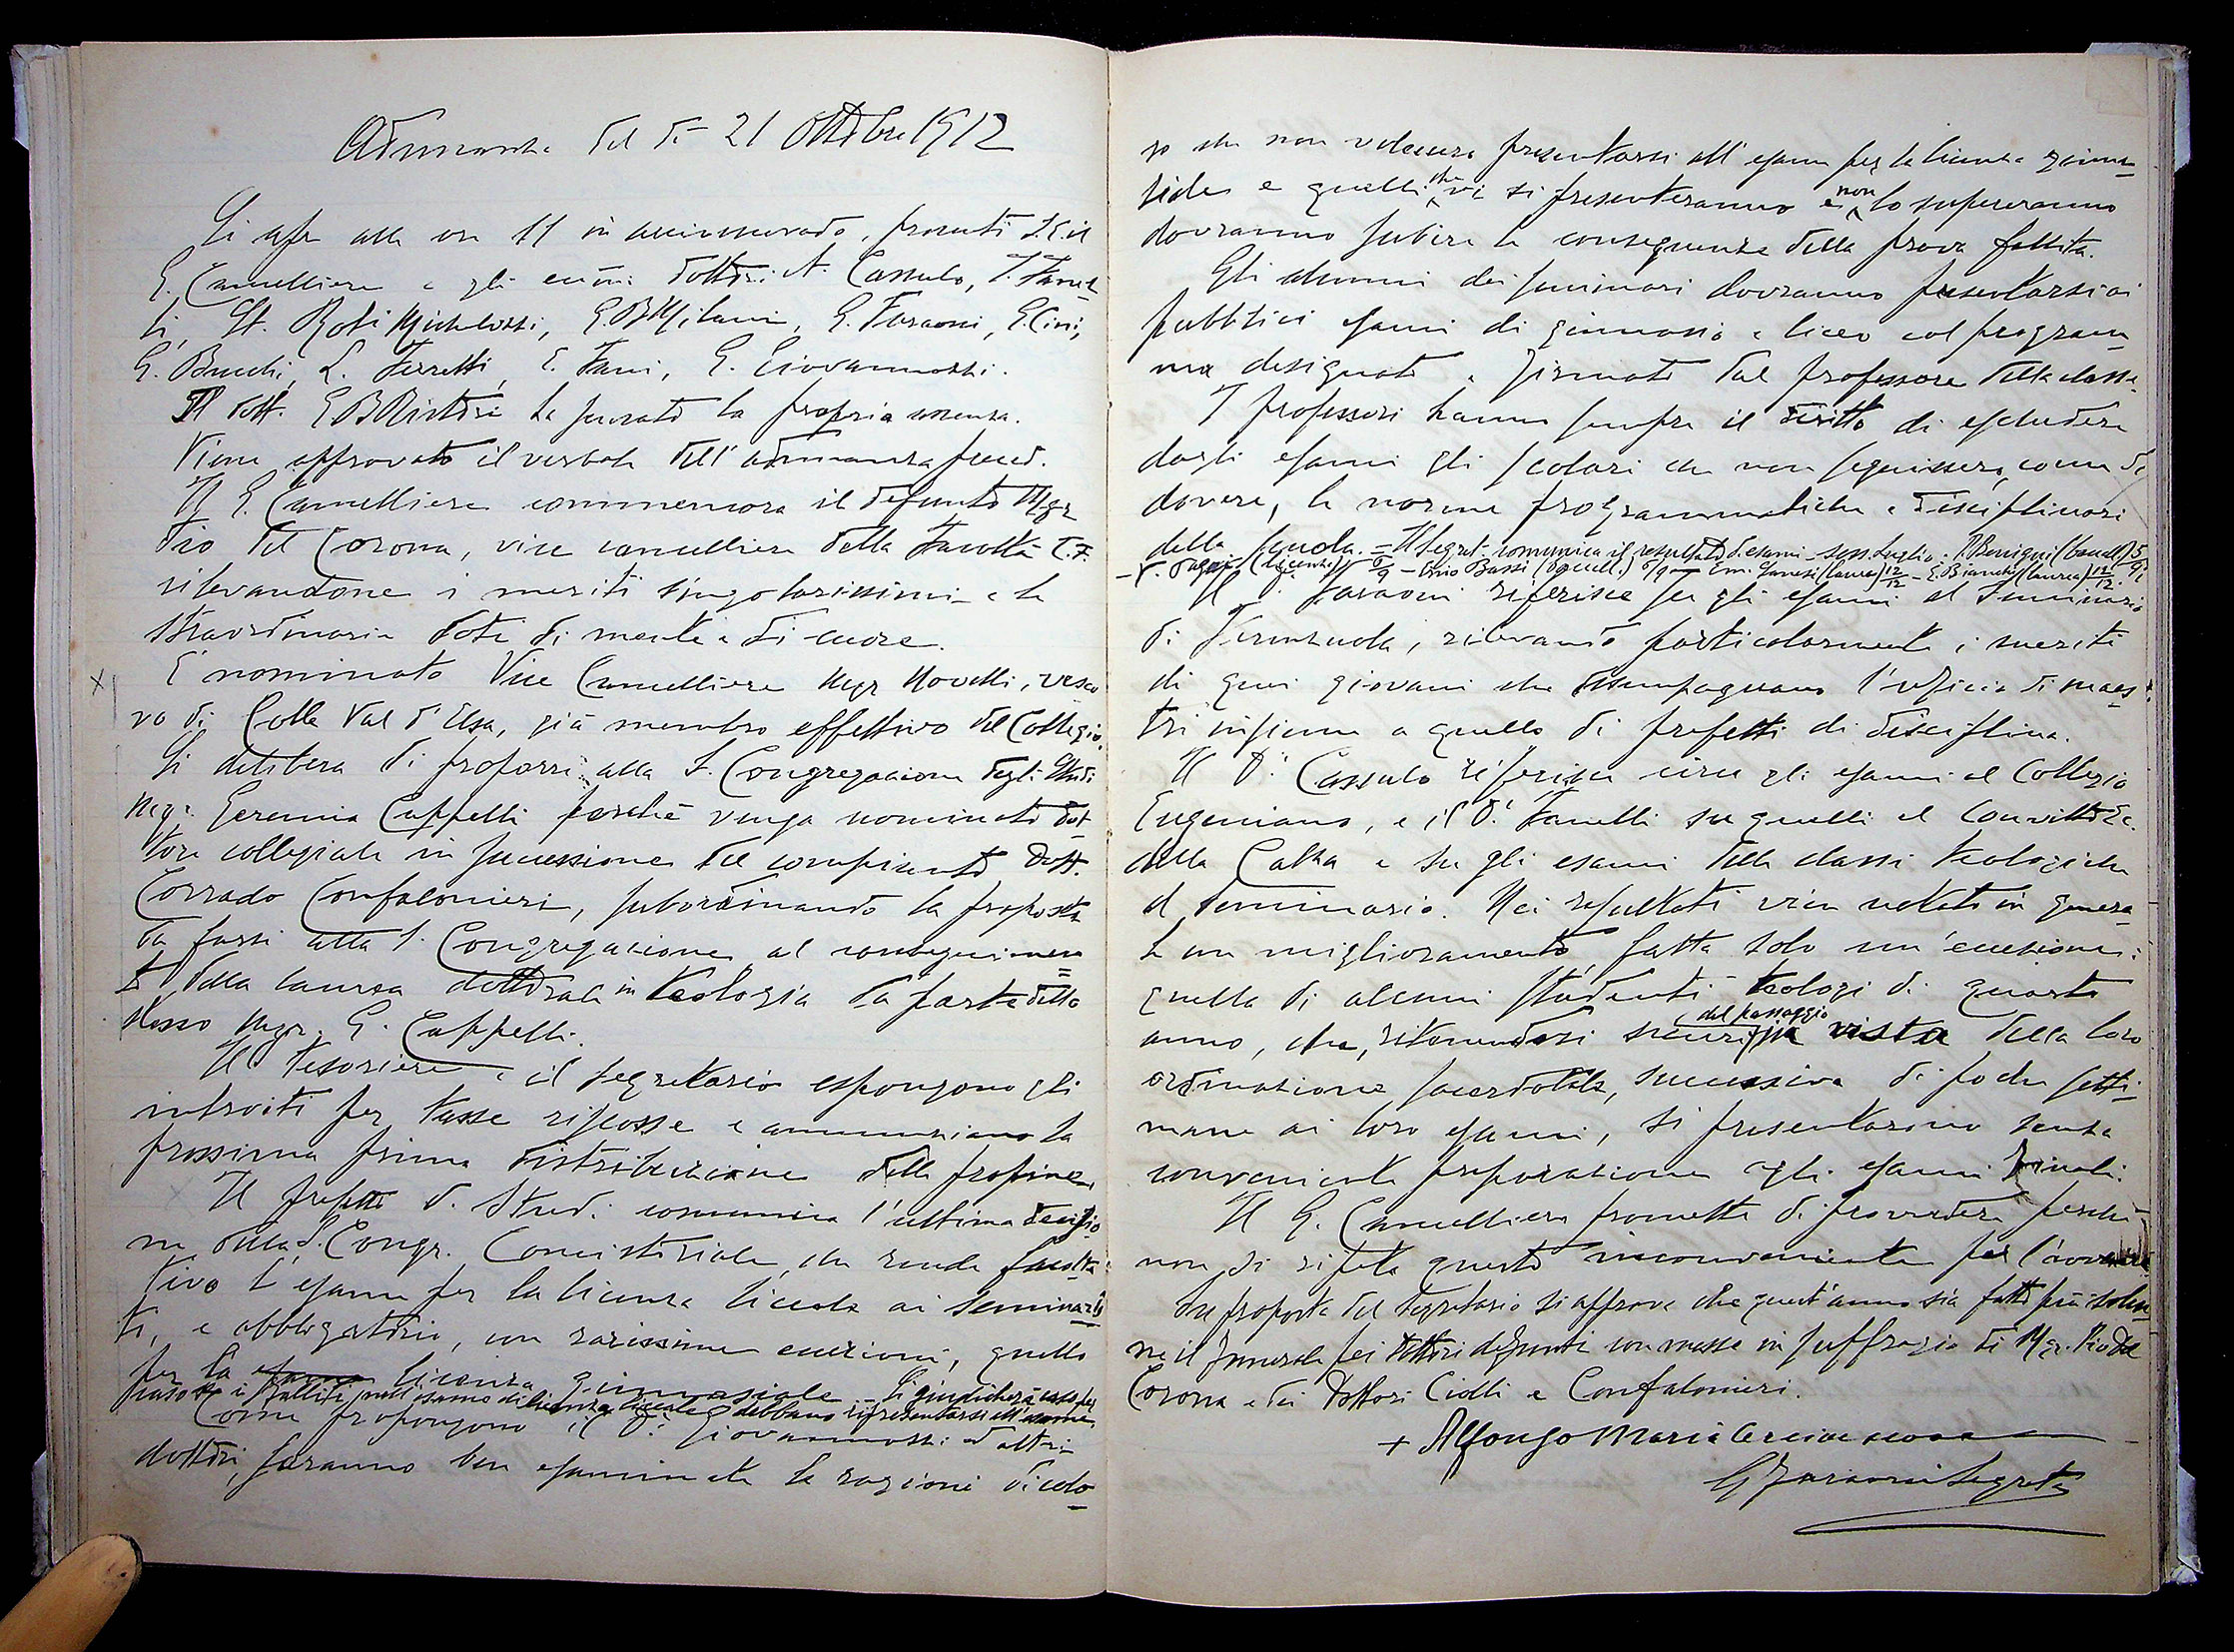 Adunanza del dì 21 Ottobre 1912
Si apre alle ore 11 in arcivescovado, presenti S. E. il
G. Cancelliere e gli eccmi dottori A. Cassulo, Fanel-
li, St. Roti Michelozzi, G. B. Milani, G. Faraoni, G. Cini,
G. Bruchi, L. Ferretti, E. Fani, G. Giovannozzi.
Il dott. G B Ristori ha scusato la propria assenza.
Viene approvato il verbale dell'adunanza preced.
Il G. Cancelliere commemora il defunto Mgr
Pio Del Corona, vice cancelliere della Facoltà T. F.
rilevandone i meriti singolarissimi e le
straordinarie doti di mente e di cuore.
È nominato Vice Cancelliere Mgr Novelli, vesco
vo di Colle Val d'Elsa, già membro effettivo del Collegio.
Si delibera di proporre alla S. Congregazione degli Studi
Mgr. Geremia Cappelli perchè venga nominato dot
tore collegiale in successione del compianto Dott.
Corrado Confalonieri, subordinando la proposta
da farsi alla S. Congregazione al conseguimen
to della laurea dottorale in teologia da parte dello
stesso Mgr. G. Cappelli.
Il tesoriere e il segretario espongono gli
introiti per tasse riscosse e annunziano la
prossima prima distribuzione delle propine.
Il prefetto d. Studi comunica l'ultima decisio
ne della S. Congr. Concistoriale, che rende facolta
tivo l'esame per la licenza liceale ai seminaris
ti, e obbligatorio, con rarissime eccezioni, quello
per la licenza ginnasiale. Si giudicherà caso per
caso se i falliti nell'esame di licenza liceale debbano ripresentarsi all'esame.
Come propongono il D. Giovannozzi ed altri
dottori, saranno ben esaminate le ragioni di colo-
ro che non volessero presentarsi all'esame per la licenza ginna-
siale e quelli che vi si presenteranno e non lo supereranno
dovranno subire le conseguenze della prova fallita.
Gli alunni dei seminari dovranno presentarsi ai
pubblici esami di ginnasio e liceo col program-
ma designato e firmato dal professore della classe.
I professori hanno sempre il diritto di escludere
dagli esami gli scolari che non seguissero, come di
dovere, le norme programmatiche e disciplinari
della scuola. = Il Segret. comunica il resultato d. esami sess. Luglio: P. Benigni (baccell.) 5/9;
(licenza) 8/9 - Ezio Bassi (baccell.) 6/9 - Em. (laurea) 12/12 - E. Bianchi (laurea) 12/12.
Il D. Faraoni riferisce su gli esami al Seminario
di Firenzuola, rilevando particolarmente i meriti
di quei giovani che disimpegnano l'ufficio di maes-
tri insieme a quello di prefetti di disciplina.
Il D. Cassulo riferisce circa gli esami al Collegio
Eugeniano, e il D. Fanelli su quelli al Convitto Ec.
della Calza e su gli esami delle classi teologiche
al Seminario. Nei resultati vien notato in genera-
le un miglioramento, fatta solo un'eccezione:
quella di alcuni studenti teologi di quarto
anno, che, ritenendosi sicuri del passaggio in vista della loro
ordinazione sacerdotale, successiva di poche setti-
mane ai loro esami, si presentarono senza
conveniente preparazione agli esami finali.
Il G. Cancelliere promette di provvedere perchè
non si ripeta questo inconveniente per l'avvenire
Su proposta del Segretario si approva che quest'anno sia fatto più solen-
ne il funerale pei dottori defunti con messe in suffragio di Mgr. Pio Del
Corona e dei Dottori Ciolli e Confalonieri.
+ Alfonso Maria Arcivescovo
G Faraoni Segret.